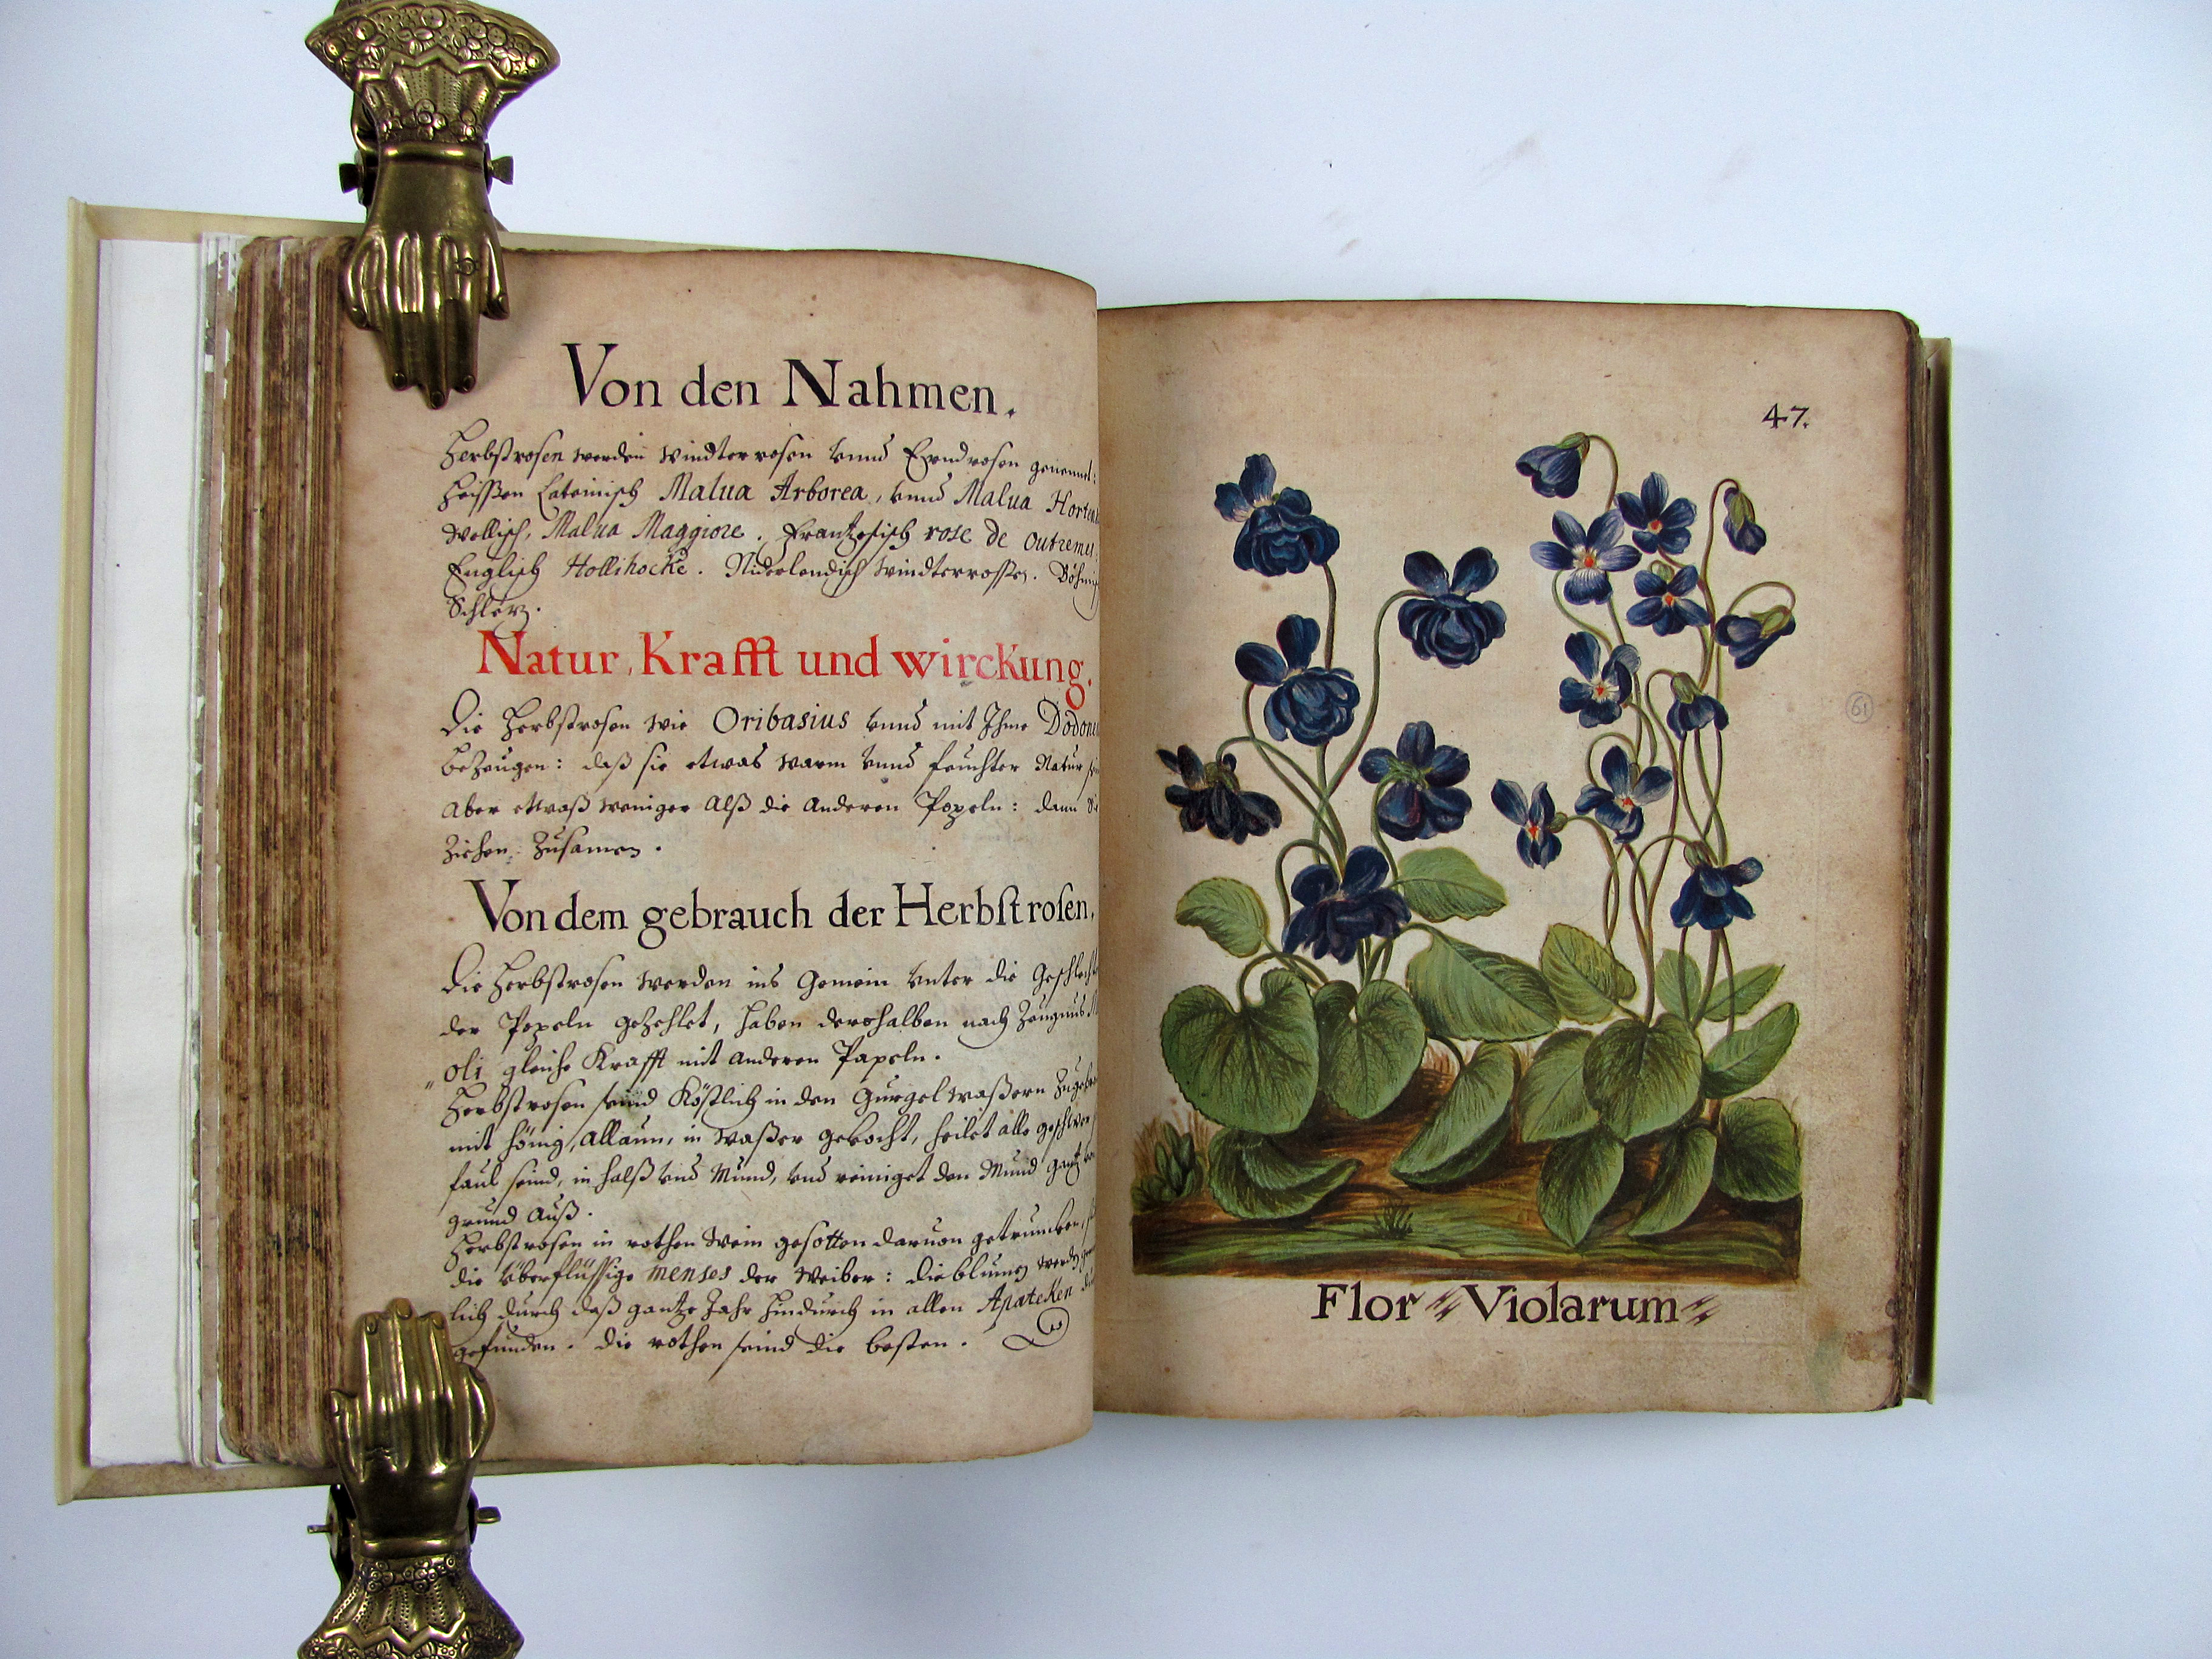 Von den Nahmen.
Herbstrosen werden Windter rosen vnnd Ernd rosen genennet:
Heissen Lateinisch Malua Arborea, vnnd Malua Horten
Wellisch, Malua Maggiore. Frantzosisch rose de outremer.
Englisch Hollihocke. Niderlendisch Windterrossen. Böhmisch
Schlerz.
Natur, Krafft und wirckung.
Die Herbstrosen wie Oribasius vnnd mit Ihme Dodon
beZeugen: daß sie etwas warm vnnd feuchter Natur
aber etwaß weniger Alß die anderen Papeln: dann
Ziehen Zusamen.
Von dem gebrauch der Herbstrosen.
Die Herbstrosen werden ins Gemein vnter die Geschlecht
der Papeln geZehlet, haben dershalben nach Zeugnus
oli gleiche Krafft mit anderen Papeln.
Herbstrosen seind Köstlich in den Gurgel waßern
mit hönig, Allaun, in waßer gekocht, heilet alle
faul seind, in halß vnd Mund, vnd reiniget den Mund gantz
grund auß.
Herbstrosen in rothen Wein gesotten daruon getruncken,
die Überflüssige menses der Weiber: die blumen werden
lich durch daß gantze Jahr hindurch in allen Apatecken
gefunden. die rothen seind die besten.
47.
61
Flor Violarum